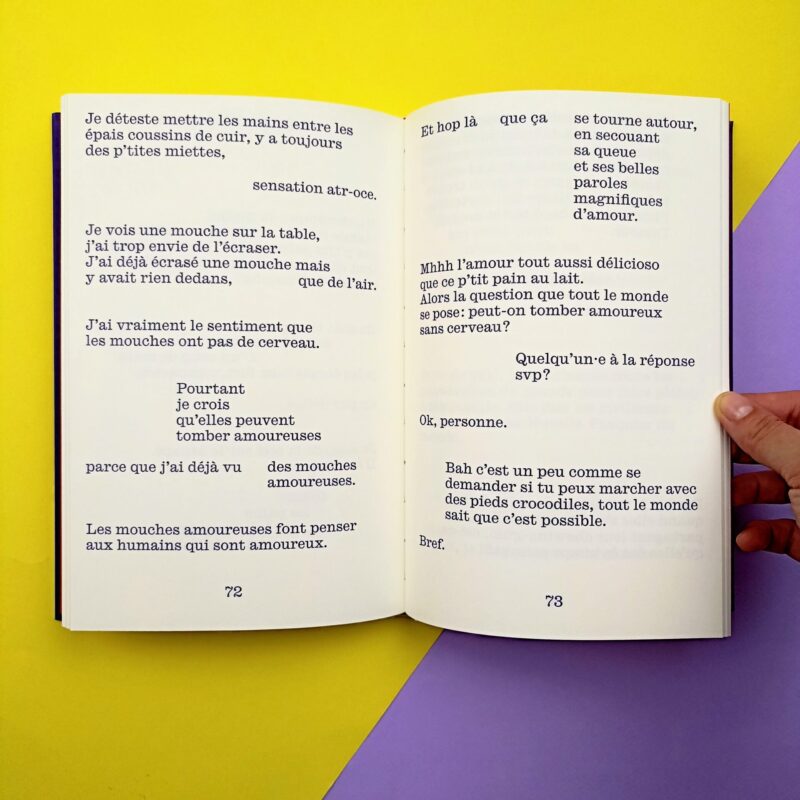 Je déteste mettre les mains entre les
épais coussins de cuir, y a toujours
des p'tites miettes,
sensation atr-oce.
Je vois une mouche sur la table,
j'ai trop envie de l'écraser.
J'ai déjà écrasé une mouche mais
y avait rien dedans, que de l'air.
J'ai vraiment le sentiment que
les mouches ont pas de cerveau.
Pourtant
je crois
qu'elles peuvent
tomber amoureuses
parce que j'ai déjà vu des mouches
amoureuses.
Les mouches amoureuses font penser
aux humains qui sont amoureux.
72
Et hop là que ça se tourne autour,
en secouant
sa queue
et ses belles
paroles
magnifiques
d'amour.
Mhhh l'amour tout aussi délicioso
que ce p'tit pain au lait.
Alors la question que tout le monde
se pose: peut-on tomber amoureux
sans cerveau?
Quelqu'un·e à la réponse
svp?
Ok, personne.
Bah c'est un peu comme se
demander si tu peux marcher avec
des pieds crocodiles, tout le monde
sait que c'est possible.
Bref.
73